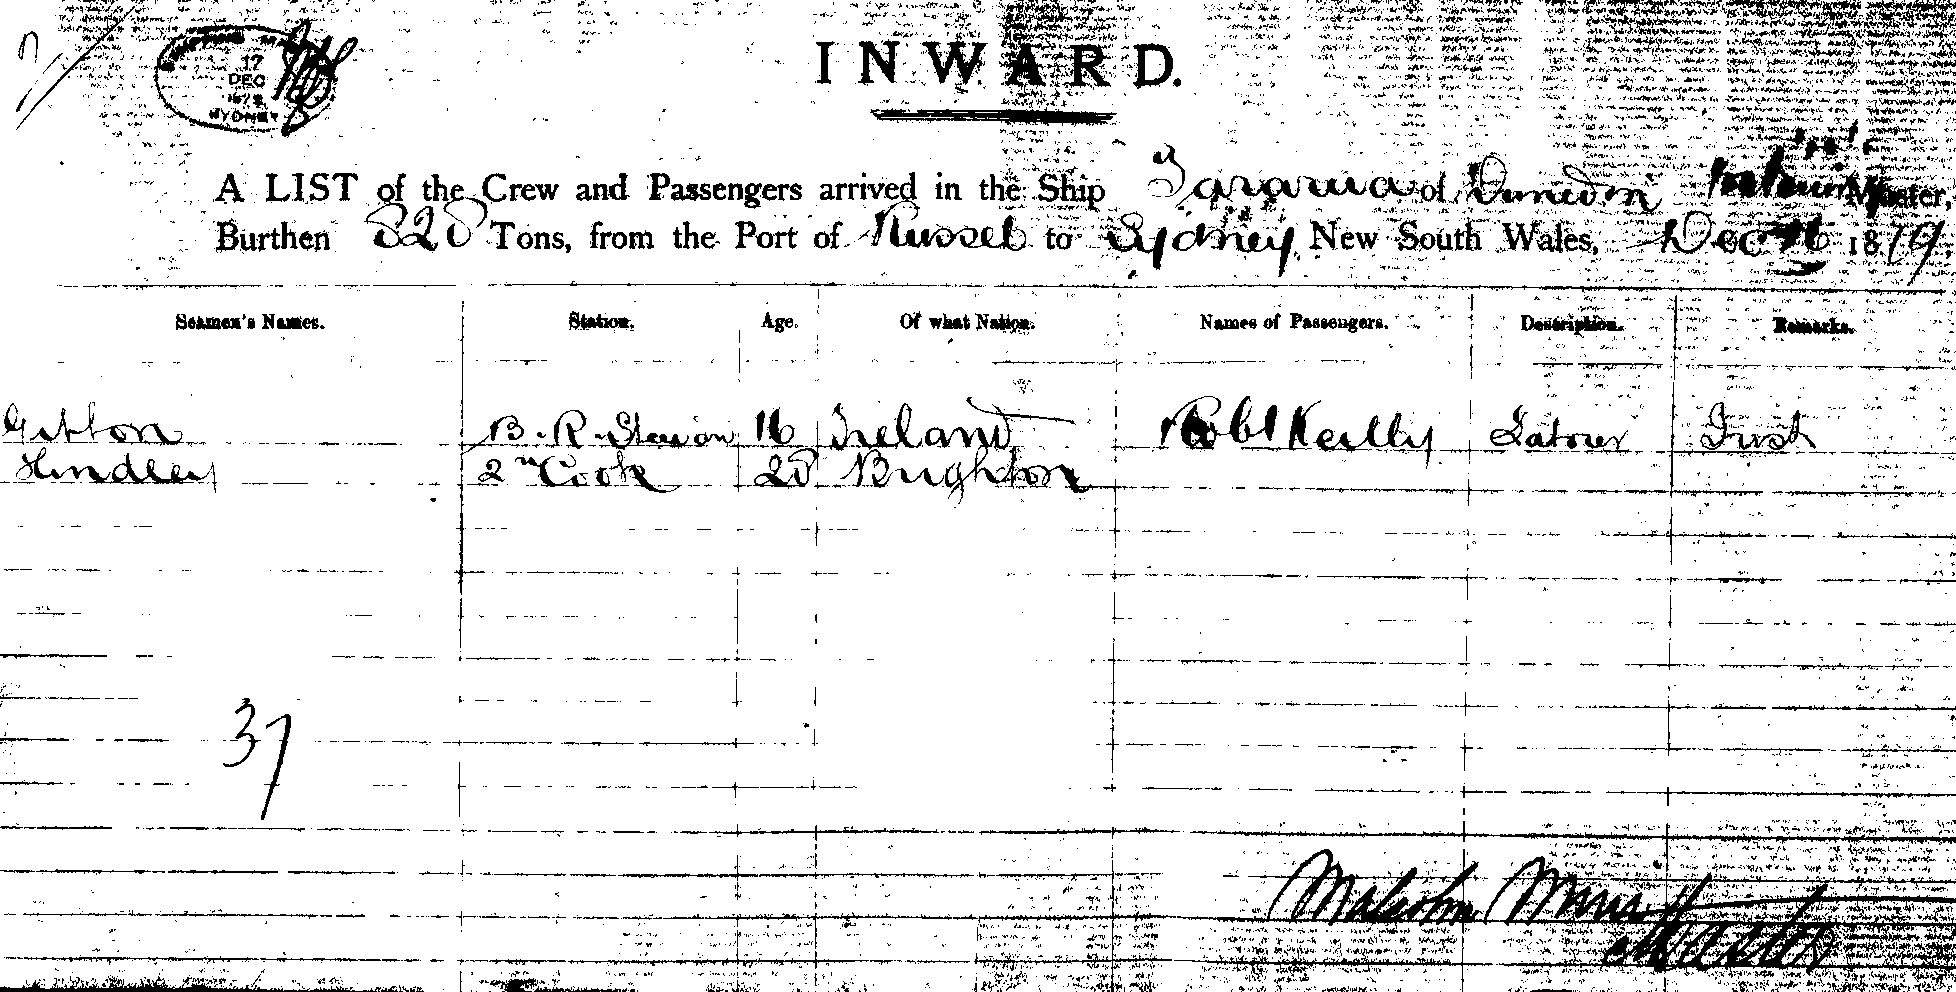 17
DEC
SYDNEY
INWARD.
A LIST of the Crew and Passengers arrived in the Ship Tararua of Dunedin Master,
Burthen 528 Tons, from the Port of Russel to Sydney, New South Wales, Dec 16 1879.
Seamen's Names. Station. Age. Of what Nation. Names of Passengers. Description. Remarks.
16 Ireland Robt Keilly Just
Hindley 2nd Cook 20 Brighton
37
Malcolm
Master